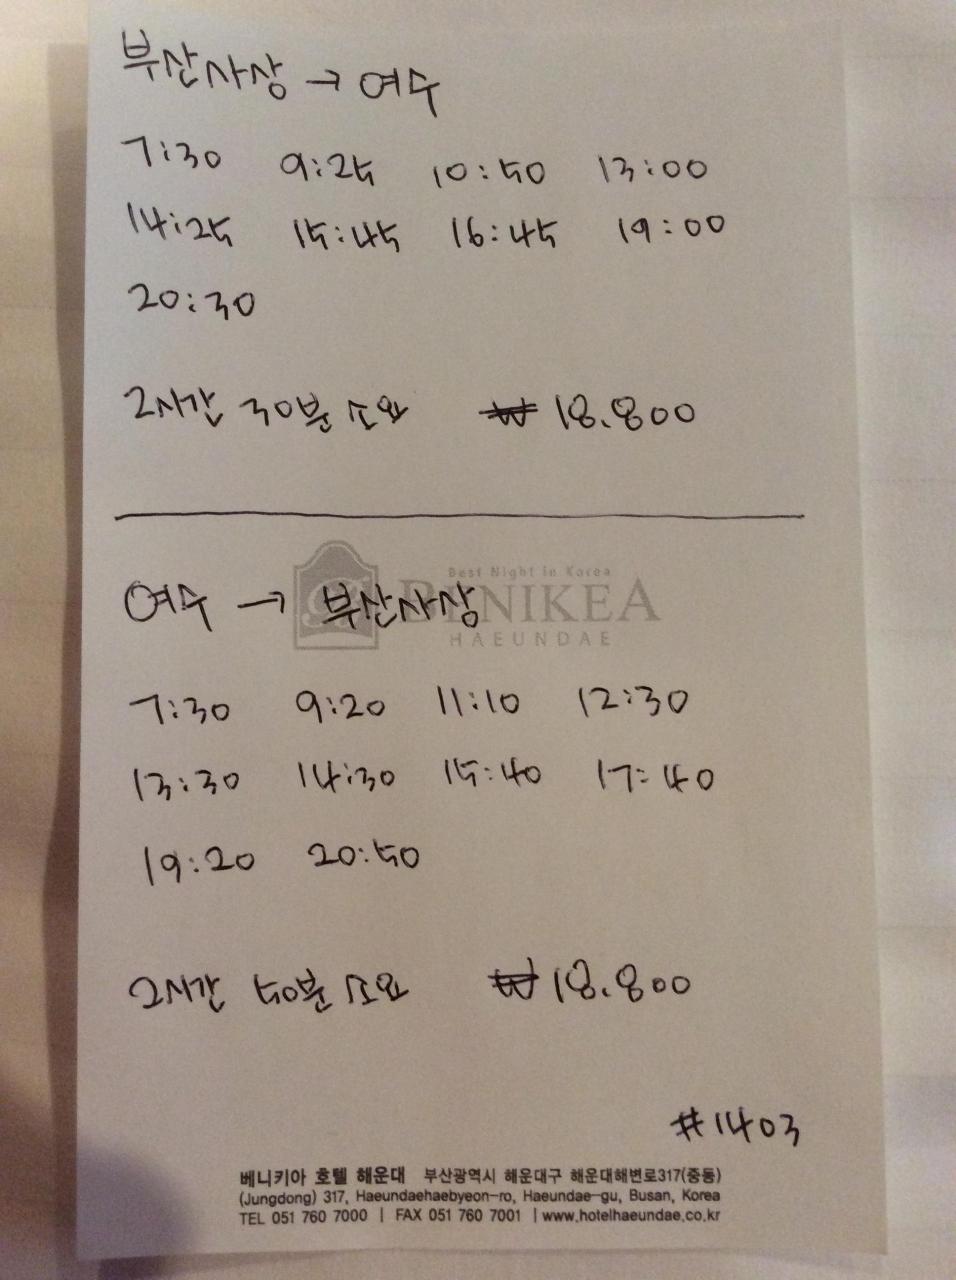 부산사상 → 여수
7:30 9:25 10:50 13:00
14:25 15:45 16:45 19:00
20:30
2시간 30분 소요 ₩ 18.800
Best Night in Korea
BENIKEA
HAEUNDAE
여수 → 부산사상
7:30 9:20 11:10 12:30
13:30 14:30 15:40 17:40
19:20 20:50
2시간 50분 소요 ₩ 18.800
#1403
베니키아 호텔 해운대 부산광역시 해운대구 해운대해변로317(중동)
(Jungdong) 317, Haeundaehaebyeon-ro, Haeundae-gu, Busan, Korea
TEL 051 760 7000 | FAX 051 760 7001 | www.hotelhaeundae.co.kr